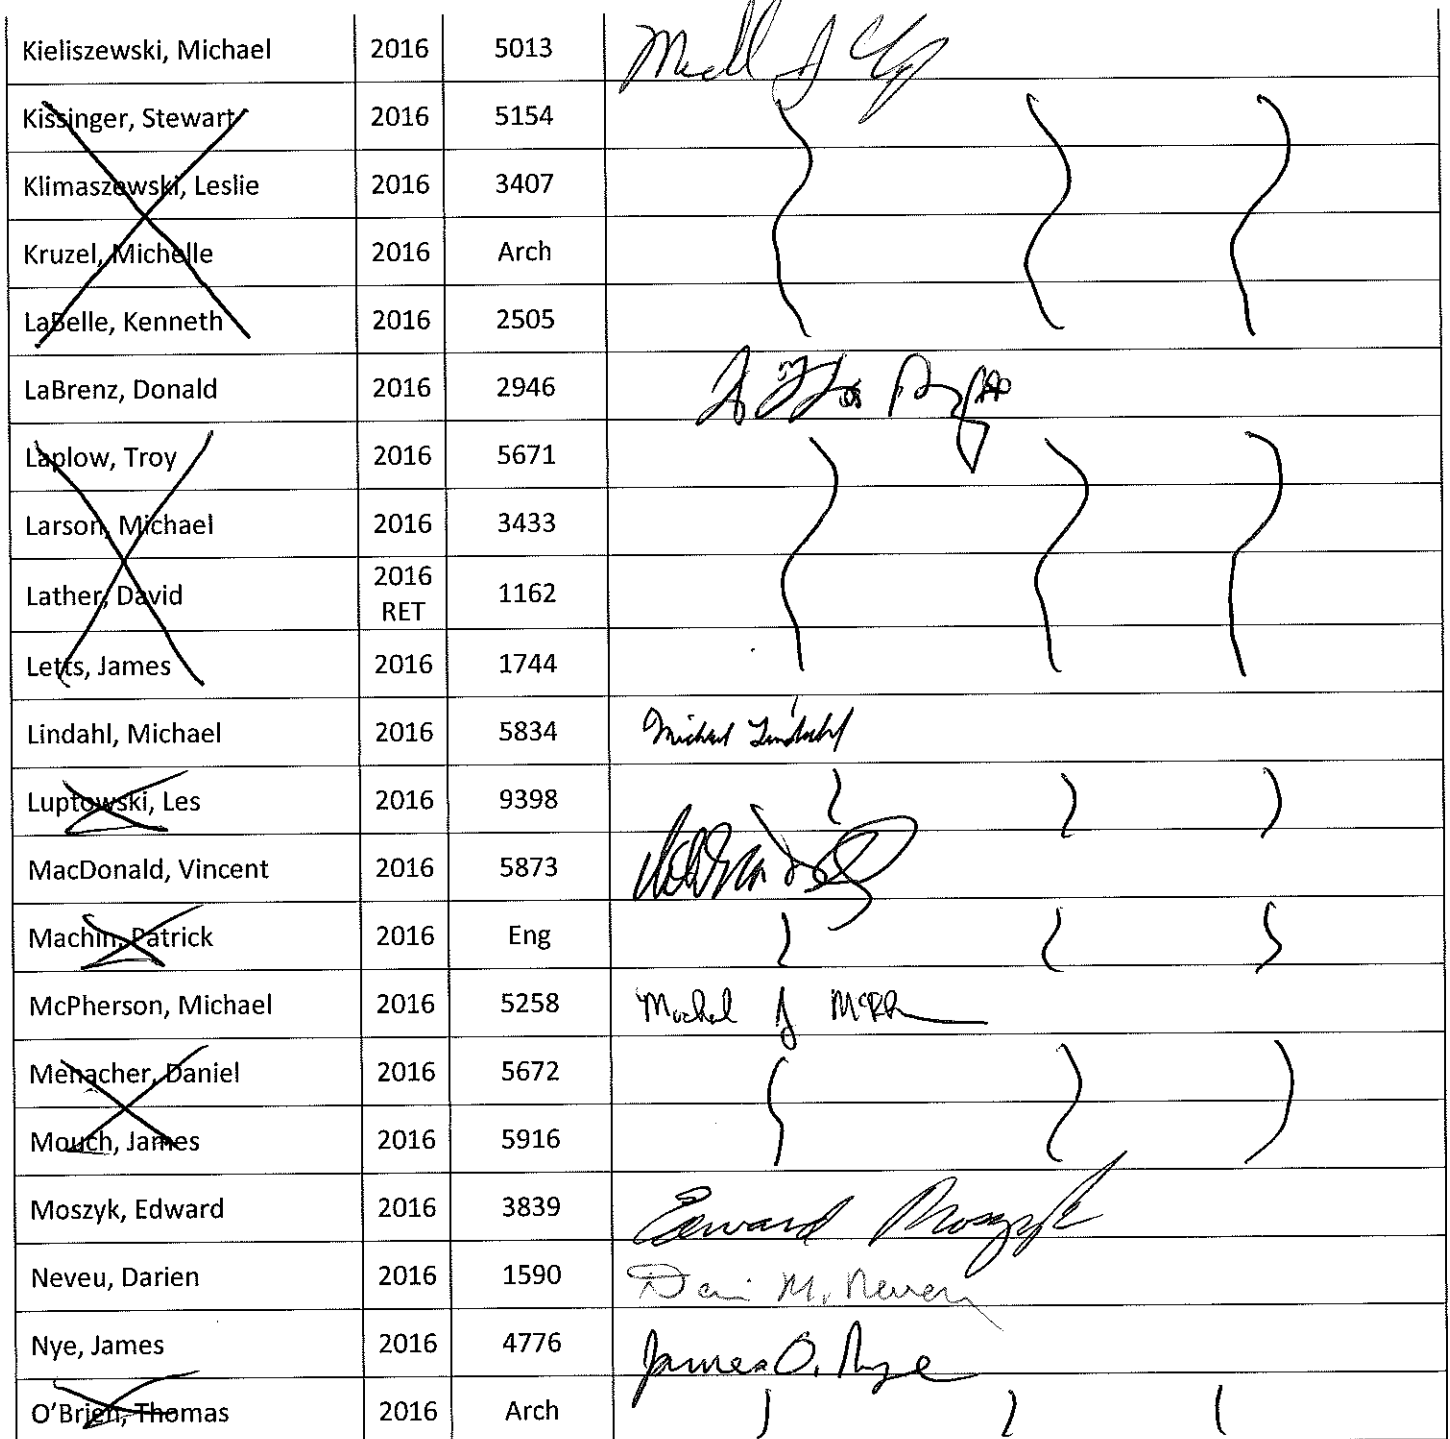 Kieliszewski, Michael 2016 5013
Kissinger, Stewart 2016 5154
Klimaszewski, Leslie 2016 3407
Kruzel, Michelle 2016 Arch
LaBelle, Kenneth 2016 2505
LaBrenz, Donald 2016 2946
Laplow, Troy 2016 5671
Larson, Michael 2016 3433
Lather, David 2016 RET 1162
Letts, James 2016 1744
Lindahl, Michael 2016 5834 Michael Lindahl
Luptowski, Les 2016 9398
MacDonald, Vincent 2016 5873
Machin, Patrick 2016 Eng
McPherson, Michael 2016 5258 Michael J McPh
Menacher, Daniel 2016 5672
Mouch, James 2016 5916
Moszyk, Edward 2016 3839 Edward Moszyk
Neveu, Darien 2016 1590 M. Neveu
Nye, James 2016 4776 James O. Nye
O'Brien, Thomas 2016 Arch